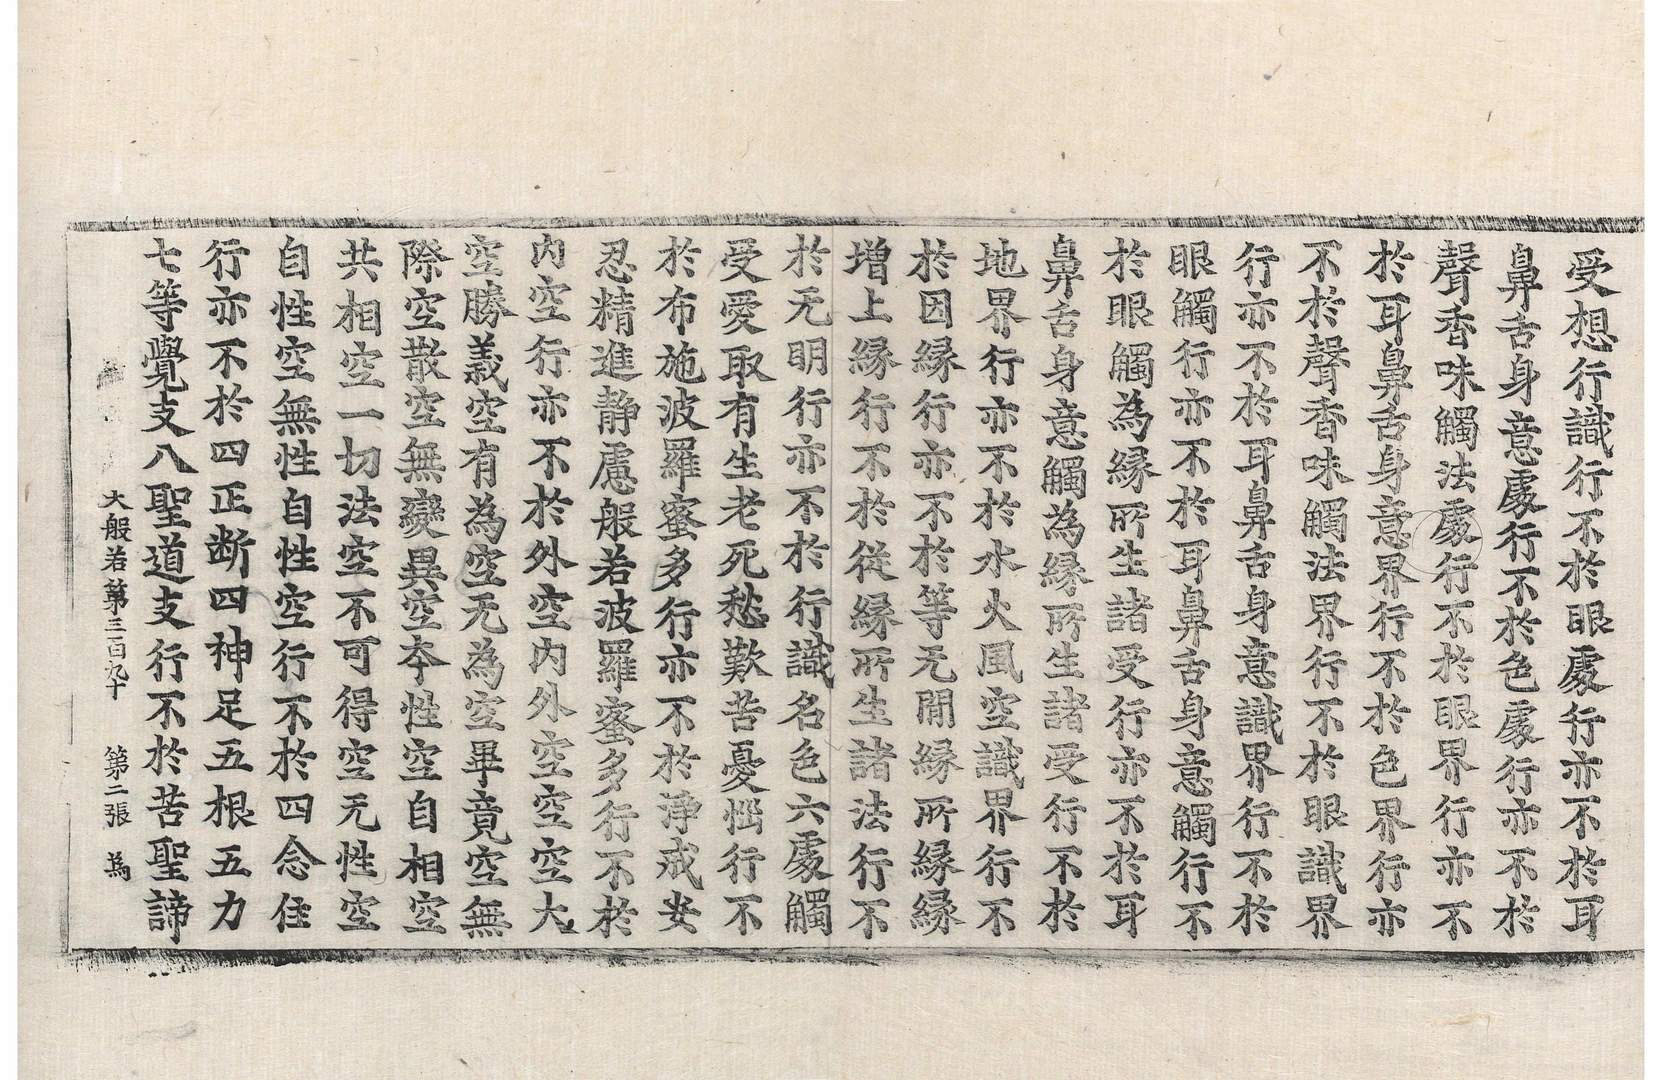 受想行識行不於眼處行亦不於耳
鼻舌身意處行不於色處行亦不於
聲香味觸法處行不於眼界行亦不
於耳鼻舌身意界行不於色界行亦
不於聲香味觸法界行不於眼識界
行亦不於耳鼻舌身意識界行不於
眼觸行亦不於耳鼻舌身意觸行不
於眼觸為縁所生諸受行亦不於耳
鼻舌身意觸為縁所生諸受行不於
地界行亦不於水火風空識界行不
於因縁行亦不於等无間縁所縁縁
增上縁行不於從縁所生諸法行不
於无明行亦不於行識名色六處觸
受愛取有生老死愁歎苦憂惱行不
於布施波羅蜜多行亦不於淨戒安
忍精進静慮般若波羅蜜多行不於
內空行亦不於外空內外空空空大
空勝義空有為空无為空畢竟空無
際空散空無變異空本性空自相空
共相空一切法空不可得空无性空
自性空無性自性空行不於四念住
行亦不於四正断四神足五根五力
七等覺支八聖道支行不於苦聖諦
大般若第三百九十 第二張 為